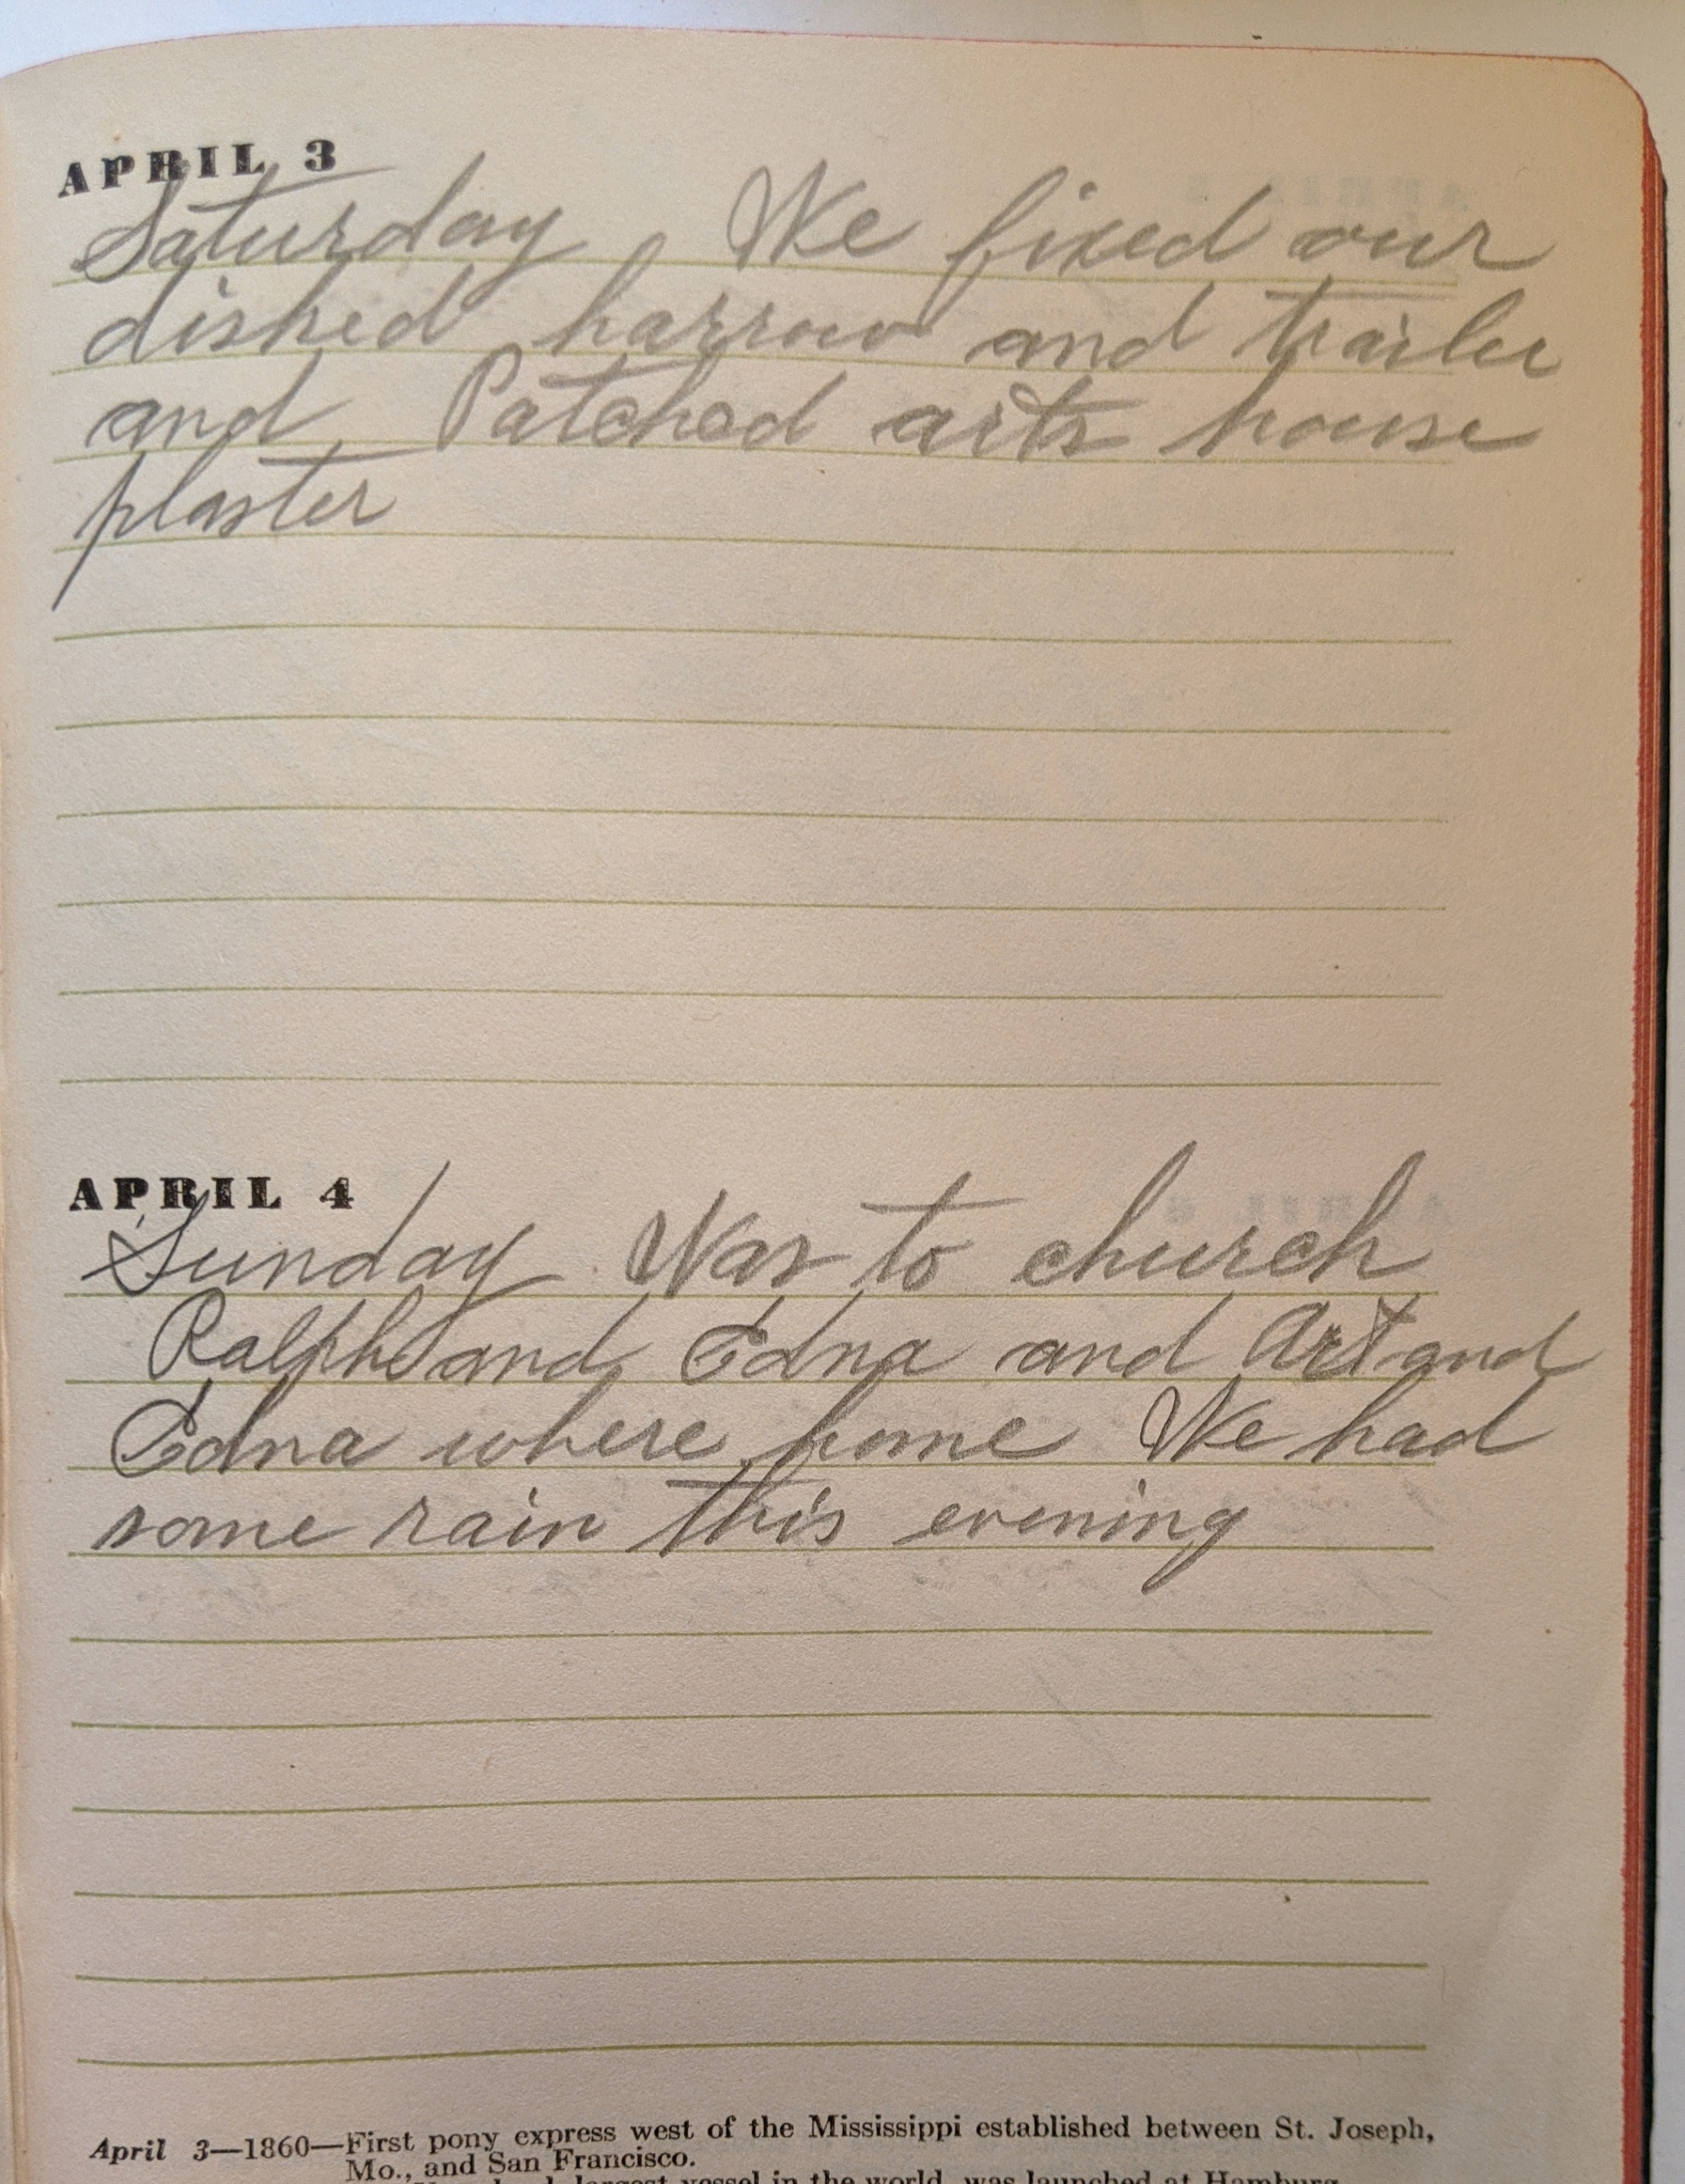 APRIL 3
Saturday We fixed our
dished harrow and trailer
and Patched arts house
plaster
APRIL 4
Sunday Was to church
Ralph and Edna and Art and
Edna where home We had
some rain this evening
April 3—1860—First pony express west of the Mississippi established between St. Joseph,
Mo., and San Francisco.
largest vessel in the world, was launched at Hamburg